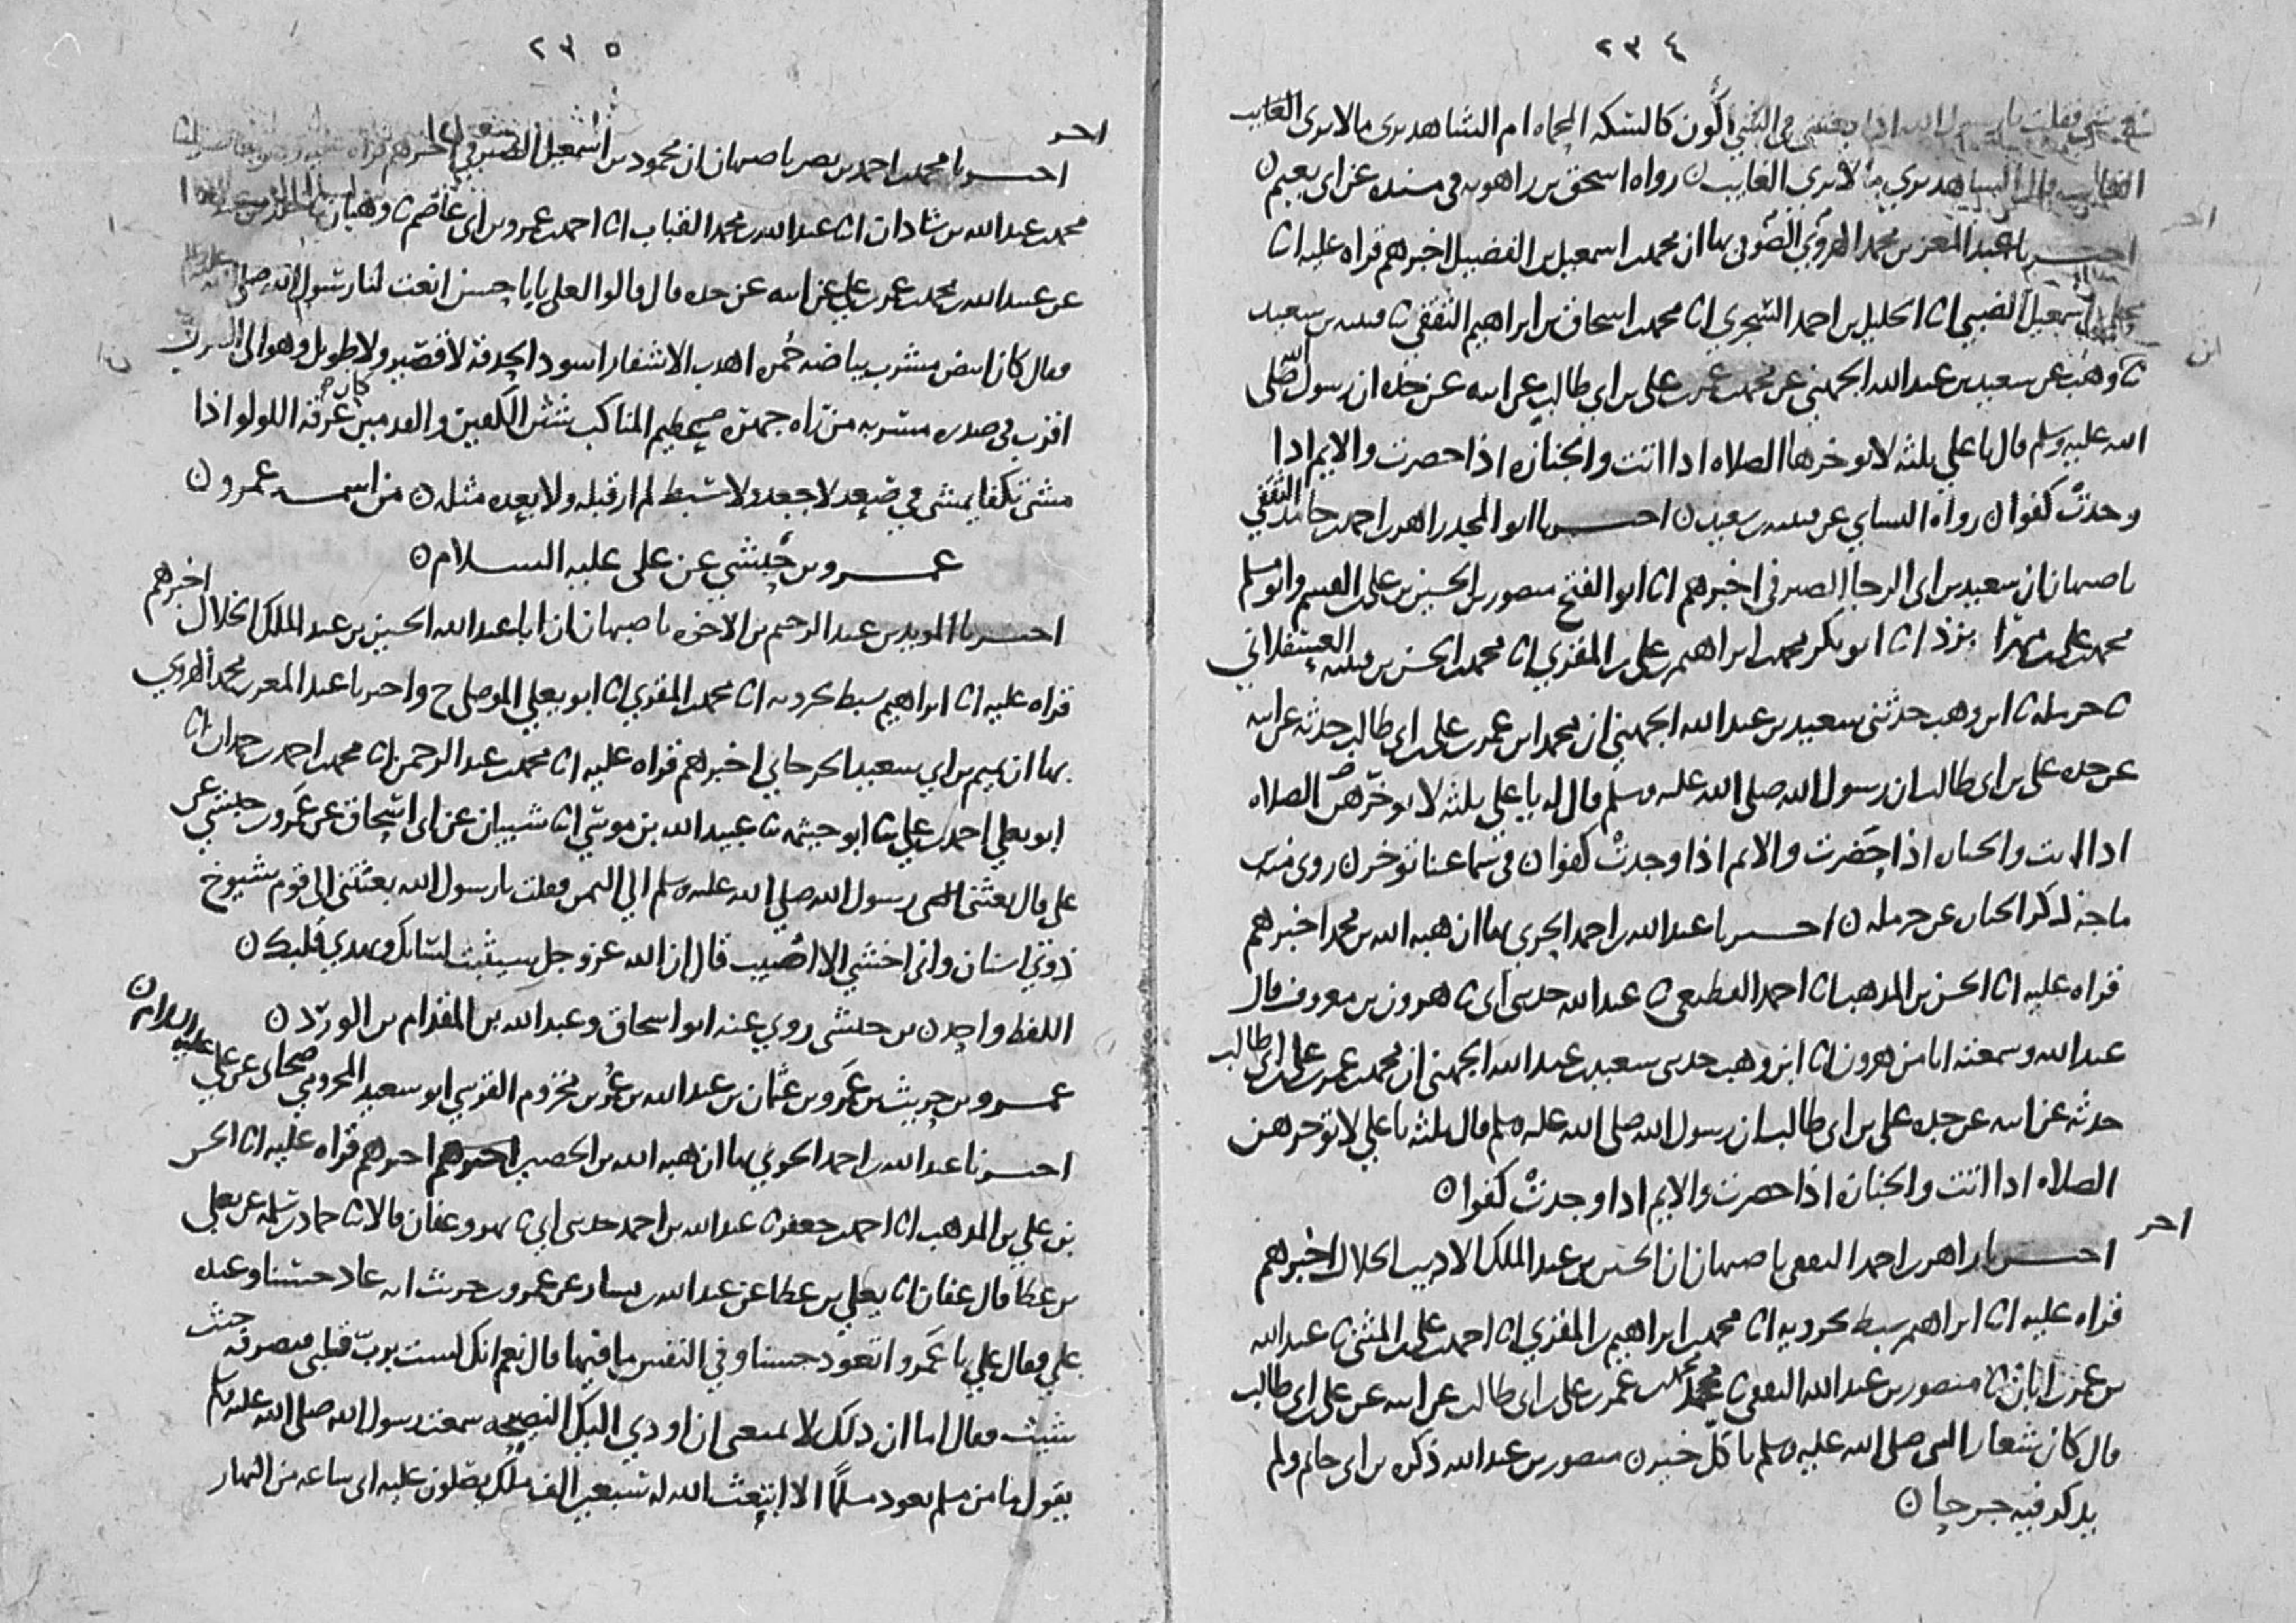 ٢٣٤
فقلت يا رسول الله اذا بعثتني في الشي اكون كالسكه المحماه ام الشاهد يرى مالا يرى الغايب
الشاهد يرى مالا يرى الغايب ن رواه اسحق بن راهويه في مسنده عن ابي نعيم ن
اخبرنا عبد المعز بن محمد الهروي الصوفي بها ان محمد بن اسمعيل بن الفضيل اخبرهم قراه عليه انا
محلم بن اسمعيل الضبي انا الخليل بن احمد السجزي انا محمد بن اسحاق بن ابراهيم الثقفي ثنا قتيبه بن سعيد
ثنا وهب عن سعيد بن عبد الله الجهني عن محمد بن عمر بن علي بن ابي طالب عن ابيه عن جده ان رسول الله صلى
الله عليه وسلم قال يا علي ثلثه لا توخرها الصلاه اذا اتت والجنازه اذا حضرت والايم اذا
وجدت كفوا ن رواه النساي عن قتيبه بن سعيد ن اخبرنا ابو المجد زاهر بن احمد بن حامد الثقفي
باصبهان ان سعيد بن ابي الرجا الصيرفي اخبرهم انا ابو الفتح منصور بن الحسين بن علي بن القسم وابو مسلم
محمد بن علي بن مهرابزذ انا ابو بكر محمد بن ابراهيم بن علي بن المقري انا محمد بن الحسن بن قتيبه العسقلاني
ثنا حرمله ثنا ابن وهب حدثني سعيد بن عبد الله الجهني ان محمد ابن عمر بن علي بن ابي طالب حدثه عن ابيه
عن جده علي بن ابي طالب ان رسول الله صلى الله عليه وسلم قال له يا علي ثلثه لا توخرهن الصلاه
اذا اتت والجنازه اذا حضرت والايم اذا وجدت كفوا ن في سماعنا توخر ن روى منه ابن
ماجه ذكر الجنازه عن حرمله ن اخبرنا عبد الله بن احمد الحربي بها ان هبه الله بن محمد اخبرهم
قراه عليه انا الحسن بن المذهب انا احمد القطيعي ثنا عبد الله حدثني ابي ثنا هرون بن معروف قال
عبد الله وسمعته انا من هرون انا ابن وهب حدثني سعيد بن عبد الله الجهني ان محمد بن عمر بن علي بن ابي طالب
حدثه عن ابيه عن جده علي بن ابي طالب ان رسول الله صلى الله عليه وسلم قال ثلثه يا علي لا توخرهن
الصلاه اذا اتت والجنازه اذا حضرت والايم اذا وجدت كفوا ن
اخبرنا زاهر بن احمد الثقفي باصبهان ان الحسين بن عبد الملك الاديب الخلال اخبرهم
قراه عليه انا ابراهيم سبط بحرويه انا محمد بن ابراهيم بن المقري انا احمد بن علي بن المثنى ثنا عبد الله
بن عمر بن ابان ثنا منصور بن عبد الله الثقفي ثنا محمد بن عمر بن علي بن ابي طالب عن ابيه عن علي بن ابي طالب
قال كان شعار النبي صلى الله عليه وسلم يا كل خير ن منصور بن عبد الله ذكره بن ابي حاتم ولم
يذكر فيه جرحا ن
٢٣٥
اخبرنا محمد بن احمد بن نصر باصبهان ان محمود بن اسمعيل الصيرفي اخبرهم قراه عليه
محمد بن عبد الله بن شاذان انا عبد الله بن محمد القباب انا احمد بن عمرو بن ابي عاصم ثنا وهبان
عن عبد الله بن محمد بن عمر بن علي عن ابيه عن جده قال قالوا لعلي يا با حسن انعت لنا رسول الله صلى
فقال كان ابيض مشرب بياضه حمره اهدب الاشفار اسود الحدقه لا قصير ولا طويل وهو الى
اقرب في صدره مسربه من راه جهره صح عظيم المناكب شثن الكفين والقدمين كان عرقه اللولو اذا
مشى تكفا يمشي في صعد لا جعد ولا سبط لم ار قبله ولا بعده مثله ن من اسمه عمرو ن
عمرو بن حبشي عن علي عليه السلام ن
اخبرنا المويد بن عبد الرحيم بن الاخوه باصبهان ان ابا عبد الله الحسين بن عبد الملك الخلال اخبرهم
قراه عليه انا ابراهيم سبط بحرويه انا محمد بن المقري انا ابو يعلى الموصلي ح واخبرنا عبد المعز بن محمد الهروي
بها ان تميم بن ابي سعيد الجرجاني اخبرهم قراه عليه انا محمد بن عبد الرحمن انا محمد بن احمد بن حمدان انا
ابو يعلى احمد بن علي ثنا ابو خيثمه ثنا عبيد الله بن موسى انا شيبان عن ابي اسحاق عن عمرو بن حبشي عن
علي قال بعثني رسول الله صلى الله عليه وسلم الى اليمن فقلت يا رسول الله بعثتني الى قوم شيوخ
ذوي اسنان واني اخشى الا اصيب قال ان الله عز وجل سيثبت لسانك ويهدي قلبك ن
اللفظ واحد ن بن حبشي روى عنه ابو اسحاق وعبد الله بن المقدام بن الورد ن
عمرو بن حريث بن عمرو بن عثمان بن عبد الله بن عمر بن مخزوم القرشي ابو سعيد المخزومي صحابي عن علي عليه السلام ن
اخبرنا عبد الله بن احمد الحربي بها ان هبه الله بن الحصين اخبرهم قراه عليه انا الحسن
بن علي بن المذهب انا احمد بن جعفر ثنا عبد الله بن احمد حدثني ابي ثنا بهز وعفان قالا ثنا حماد بن سلمه عن يعلى
بن عطا قال عفان انا يعلى بن عطا عن عبد الله بن يسار عن عمرو بن حريث انه عاد حسنا وعنده
علي فقال علي يا عمرو اتعود حسنا وفي النفس ما فيها قال نعم انك لست برب قلبي فتصرفه حيث
شيت فقال اما ان ذلك لا يمنعني ان اودي اليك النصيحه سمعت رسول الله صلى الله عليه وسلم
يقول ما من مسلم يعود مسلمًا الا ابتعث الله له سبعين الف ملك يصلون عليه اي ساعه من النهار